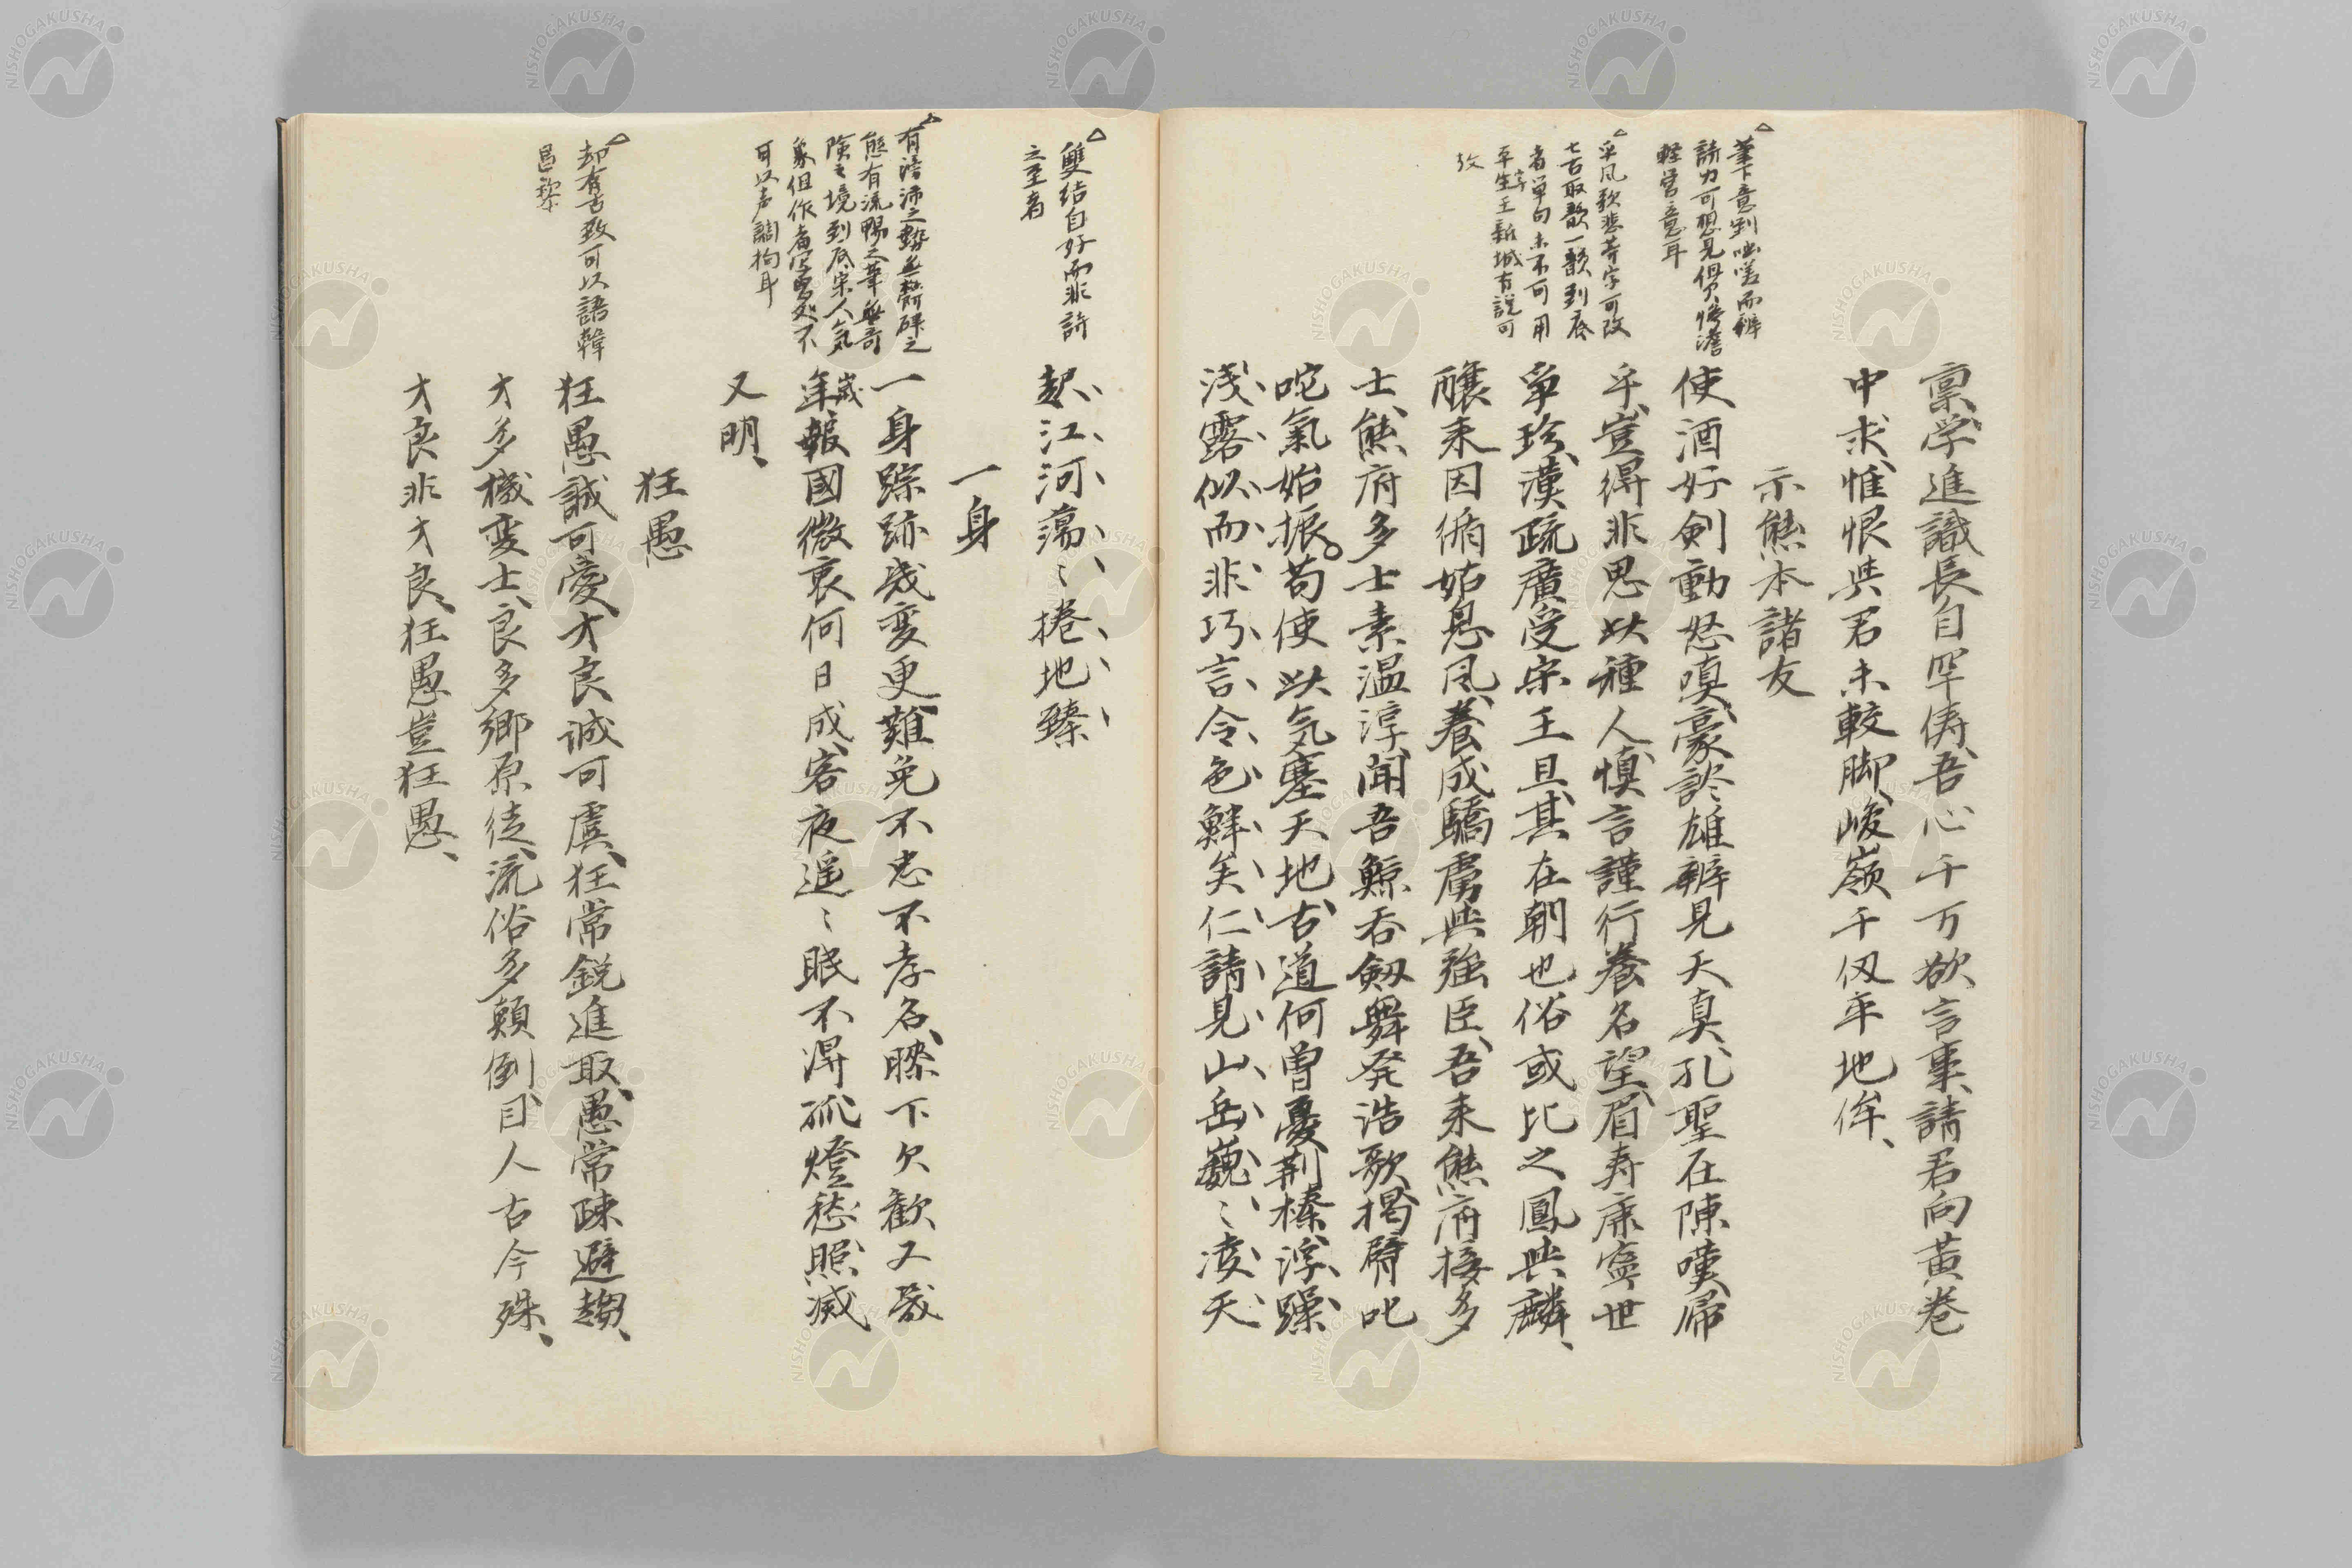 稟学進識長自罕儔、吾心千万欲言事、請君向黄巻
中求、惟恨與君未較脚、峻嶺千仭平地侔、
示熊本諸友
使酒好剣動怒嗔、豪談雄辨見天真、孔聖在陳嘆帰
乎、豈得非思此種人、慎言謹行養名望、眉寿康寧世
争珍、漢疏廣受宋王旦、其在朝也俗或比之鳳與麟、
醸来因循姑息风、養成驕虜與强臣、吾来熊府接多
士、熊府多士素温淳、聞吾鯨呑剱舞発浩歌、揭臂叱
咤氣始振。苟使此気塞天地、古道何曽憂荆榛、浮躁
浅露似而非、巧言令色鮮矣仁、請見山岳巍〻凌天
起、江河蕩〻捲地臻
一身
一身踪跡幾変更、難免不忠不孝名、膝下欠歓又歳
年、歳報國微衷何日成、客夜遥〻眠不得、孤燈愁照滅
又明、
狂愚
狂愚誠可愛、才良誠可虞、狂常鋭進取、愚常疎避趨、
才多機変士、良多郷原徒、流俗多顛倒、目人古今殊、
才良非才良、狂愚豈狂愚、
△
筆下意到咄嗟而辨
詩力可想見但欠惨澹
経営意耳
△
乎风歌悲等字可改
七古取歌一韻到底
者単句未不可用
平字生王新城有説可
攷
△
雙结自好而非詩
之至者
△
有滂沛之勢無窘碍之
態有流暢之筆無奇
険之境到底宋人気
象但作者写実処不
可以声調拘耳
△
却有古致可以語韓
昌黎
NISHOGAKUSHA